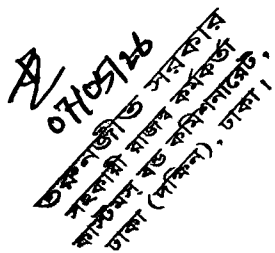 07/05/26
জীত সরকার
সহকারী রাজস্ব কর্মকর্তা
কাস্টমস বন্ড কমিশনারেট,
ঢাকা (দক্ষিণ), ঢাকা।